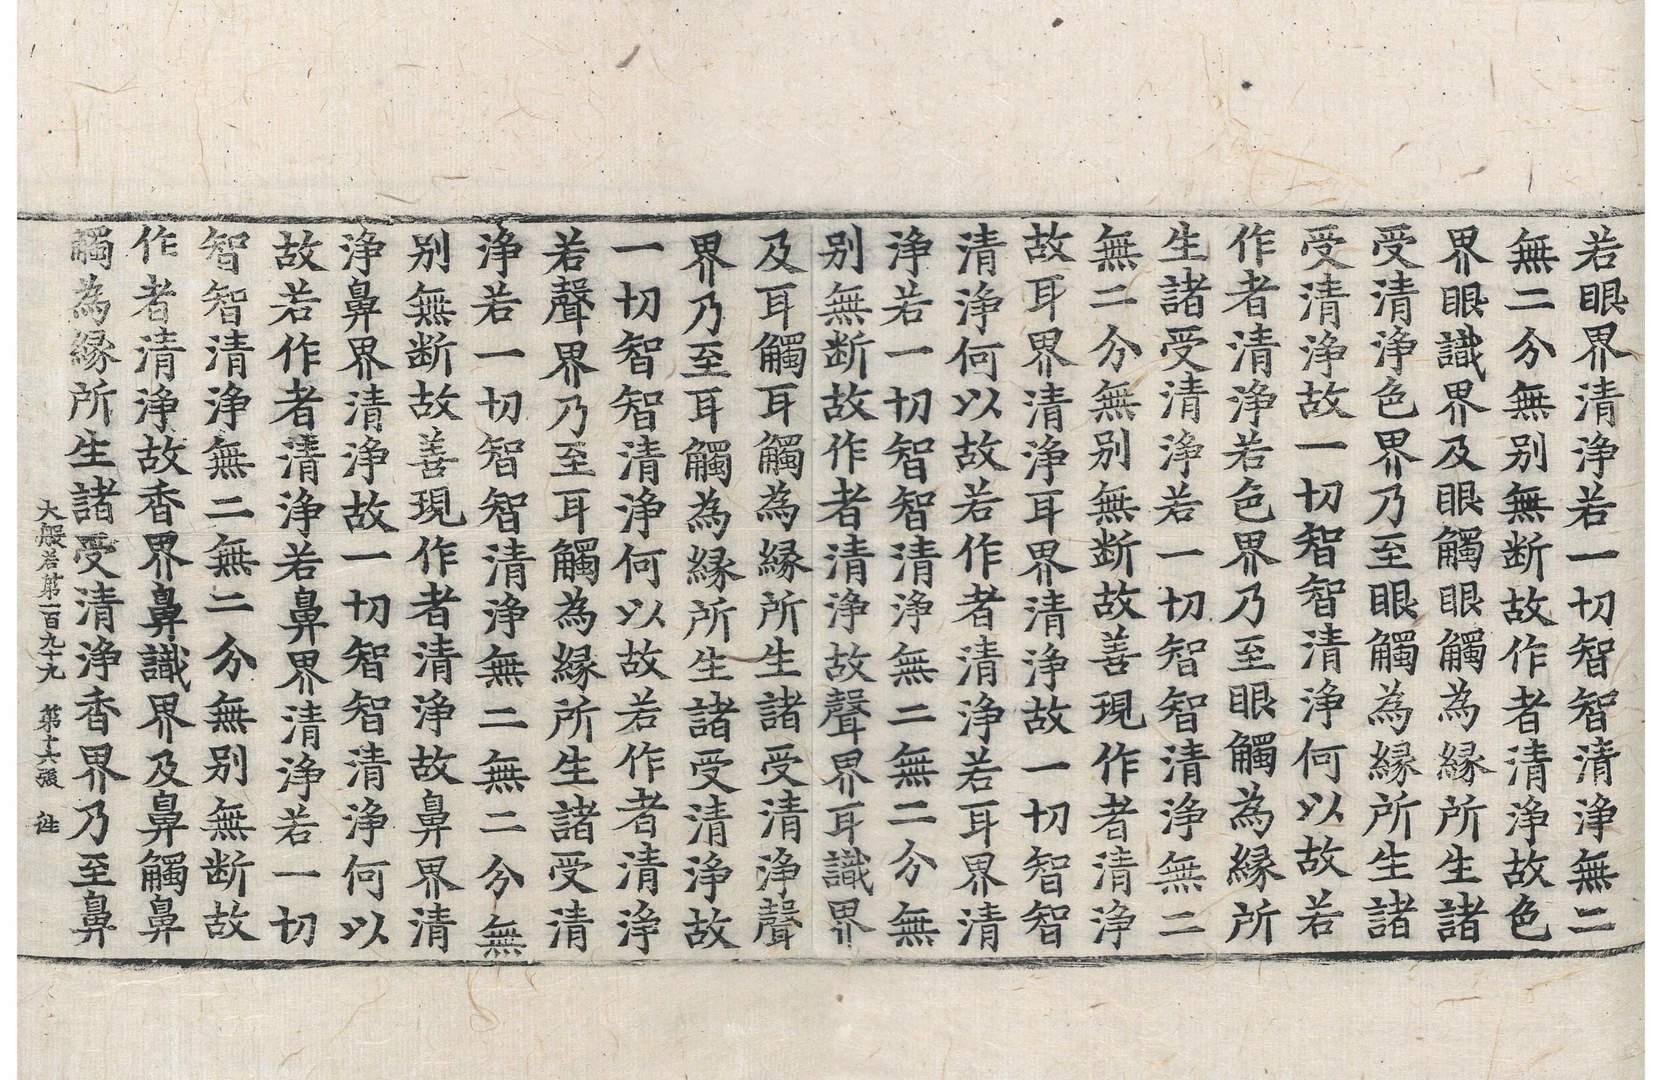 若眼界清浄若一切智智清浄無二
無二分無别無断故作者清浄故色
界眼識界及眼觸眼觸為縁所生諸
受清浄色界乃至眼觸為縁所生諸
受清浄故一切智智清浄何以故若
作者清浄若色界乃至眼觸為縁所
生諸受清浄若一切智智清浄無二
無二分無别無断故善現作者清浄
故耳界清浄耳界清浄故一切智智
清浄何以故若作者清浄若耳界清
浄若一切智智清浄無二無二分無
别無断故作者清浄故聲界耳識界
及耳觸耳觸為縁所生諸受清浄聲
界乃至耳觸為縁所生諸受清浄故
一切智智清浄何以故若作者清浄
若聲界乃至耳觸為縁所生諸受清
浄若一切智智清浄無二無二分無
别無断故善現作者清浄故鼻界清
浄鼻界清浄故一切智智清浄何以
故若作者清浄若鼻界清浄若一切
智智清浄無二無二分無别無断故
作者清浄故香界鼻識界及鼻觸鼻
觸為縁所生諸受清浄香界乃至鼻
大般若第一百九十九 第十六張 往